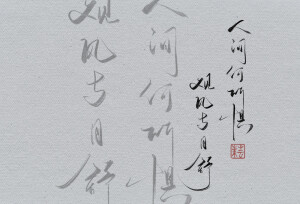 人间何所惧
观风与月舒
人间何所惧
观风与月舒